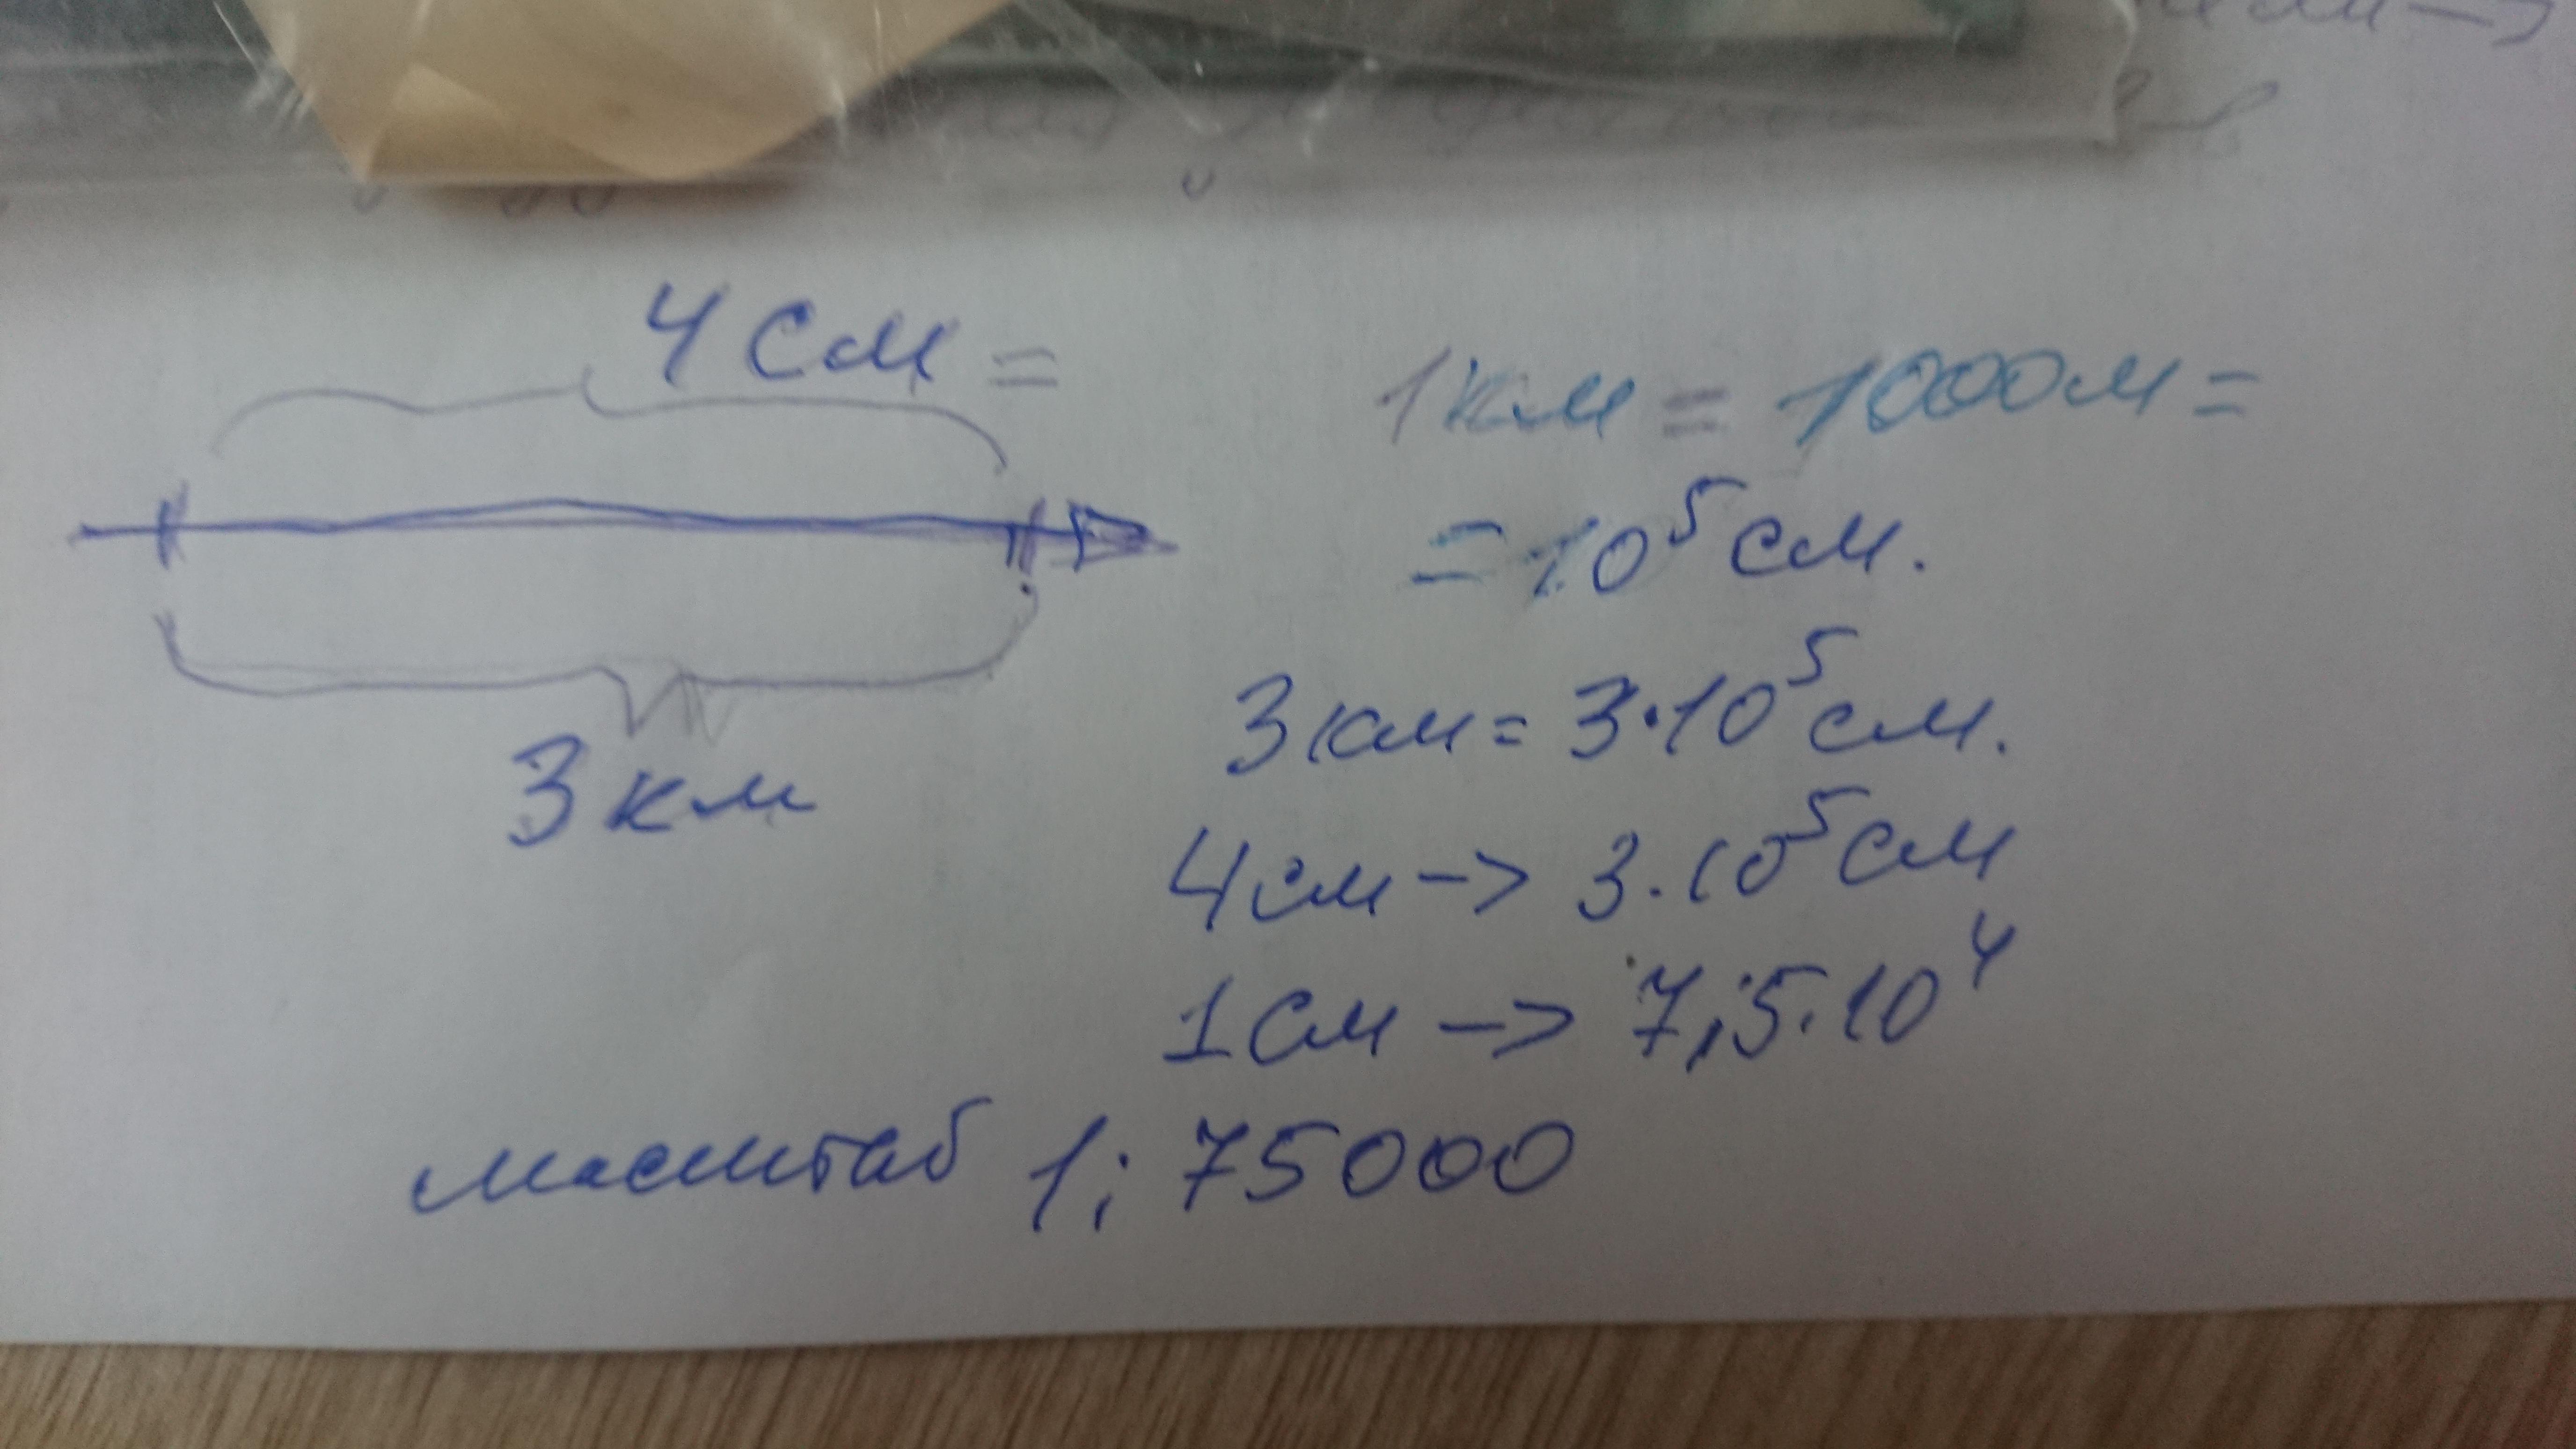 4 см =
3 км
1 км = 1000 м =
= 10⁵ см.
3 км = 3·10⁵ см.
4 см -> 3·10⁵ см
1 см -> 7,5·10⁴
масштаб 1: 75000